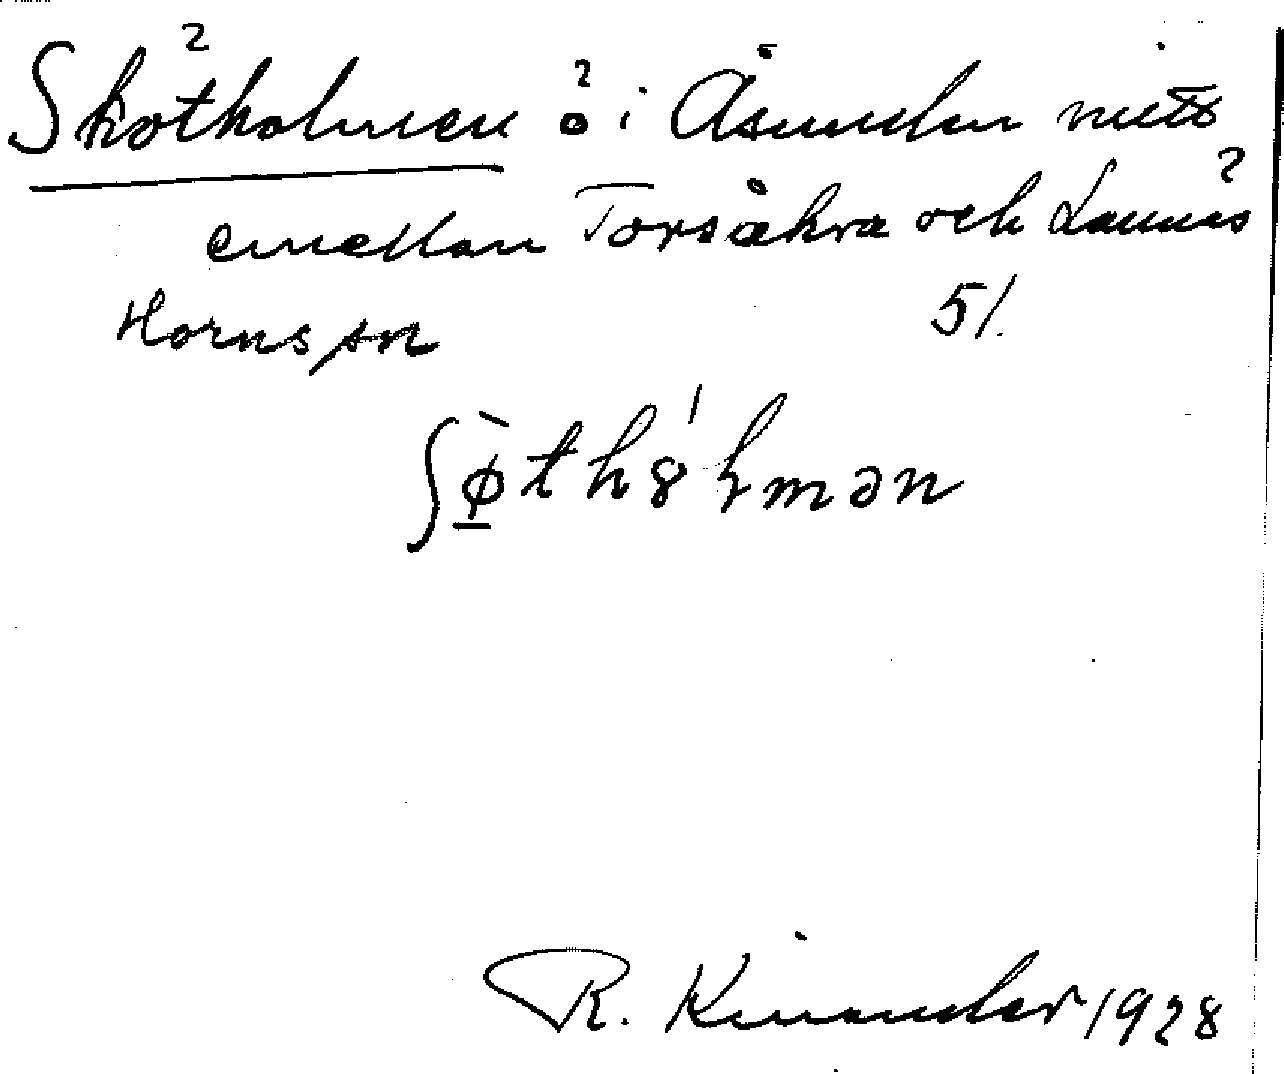 Skötholmen ö i Åsunden mitt
emellan Torsåkra och Lännäs
Horns sn 51.
ʃø̱̀thɞ́ɽmən
R. Kinander 1928